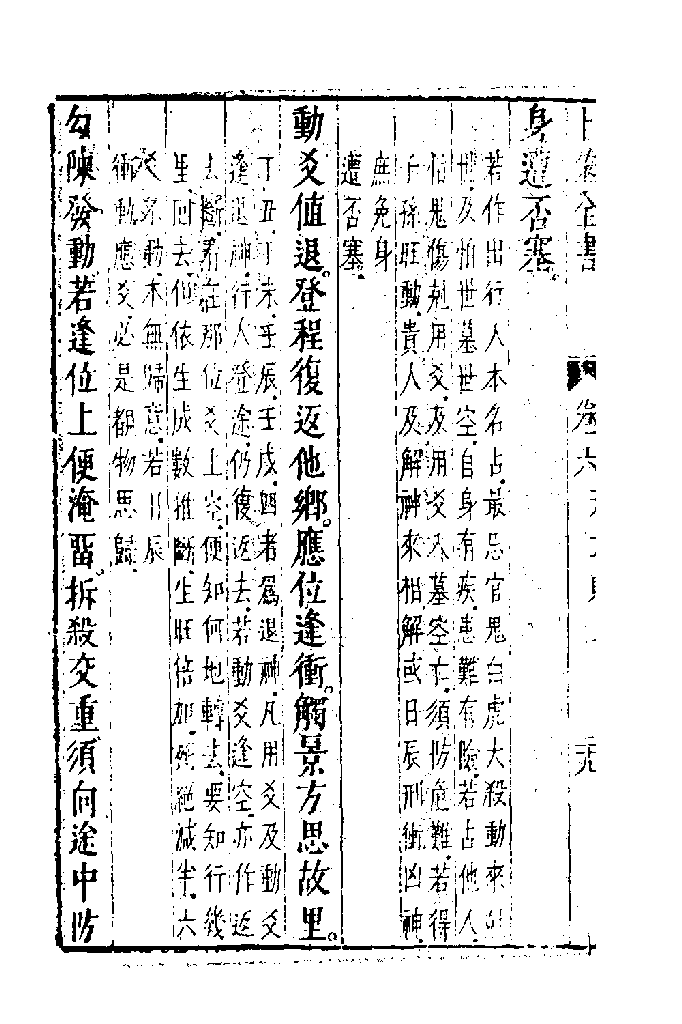 卜筮全書 卷六 十九
身遭否塞。
若作出行人本名占。最忌官鬼白虎大殺動來尅
世。及怕世墓世空。自身有疾患難有險。若占他人。
怕鬼傷剋用爻。及用爻入墓空亡。須防危難。若得
子孫旺動。貴人及解神來相解。或日辰刑衝凶神。
庶免身
遭否塞。
動爻値退。登程復返他鄉。應位逢衝。觸景方思故里。
丁丑。丁未。壬辰。壬戌。四者爲退神。凡用爻及動爻
逢退神。行人登途。仍復返去。若動爻逢空。亦作返
去斷。看在那位爻上空。便知何地轉去。要知行幾
里。回去。仰依生成數推斷。生旺倍加。死絶減半。六
爻不動。本無歸意。若日辰
衝動應爻。必是覩物思歸。
勾陳發動。若逢位上便淹留。折殺交重。須向途中防